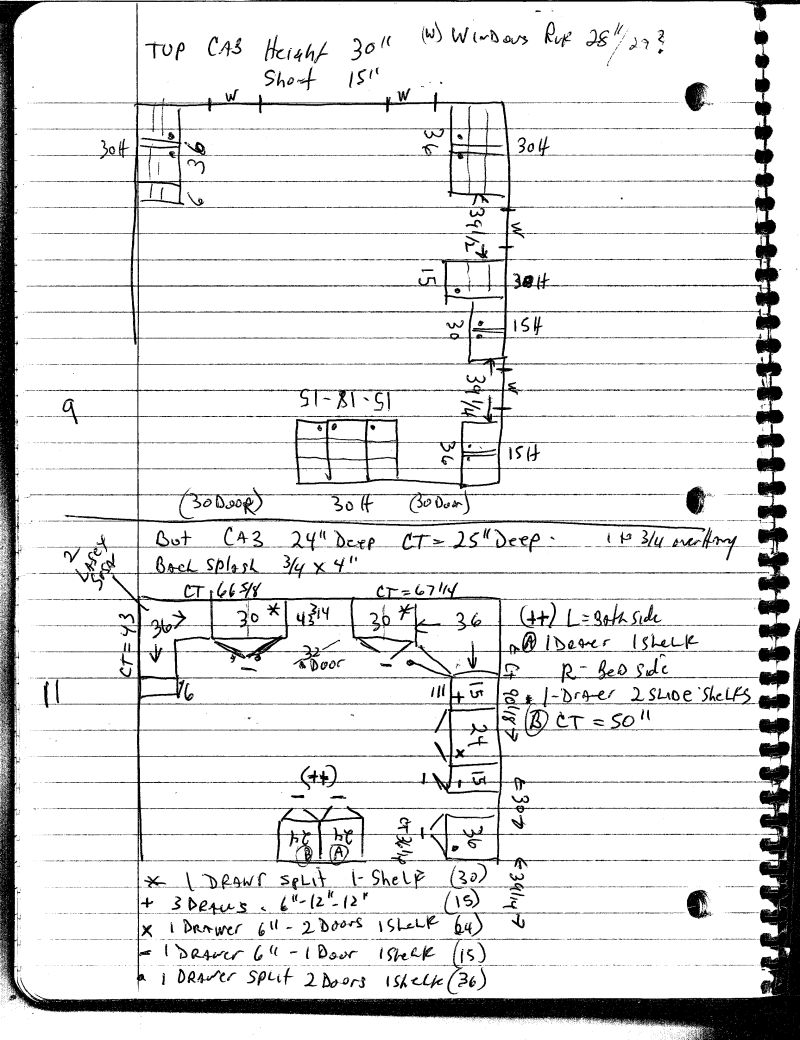 TOP CAB Height 30" (W) Windows RUF 28"/27?
Short 15"
W W
30H 36 36 30H
9
39 1/2 W
15 30H
30 15H
39 1/4 W
15-18-15
9
36 15H
(30 DOOR) 30H (30 Door)
Bot CAB 24" Deep CT = 25" Deep. 1 to 3/4 overHang
Back splash 3/4 x 4"
2
LASEY
SUSAN
CT 66 5/8 CT = 67 1/4
CT = 43
36 30 * 43 3/4 30 * 36 (++) L = Both side
32
Door
A 1 Drawer 1 shelk
R - Bed side
1-Drawer 2 SLIDE Shelfs
B CT = 50"
CT 90 1/8
11 16
III + 15
24 x
- 15
(++)
30
24 B 24 A CT 36 1/4 36
39 1/4
* 1 DRAWS SPLIT 1-Shelf (30)
+ 3 DRAWS - 6"-12"-12" (15)
x 1 Drawer 6" - 2 Doors 1 Shelk (24)
- 1 Drawer 6" - 1 Door 1 Shelk (15)
• 1 Drawer SPLIT 2 Doors 1 Shelk (36)